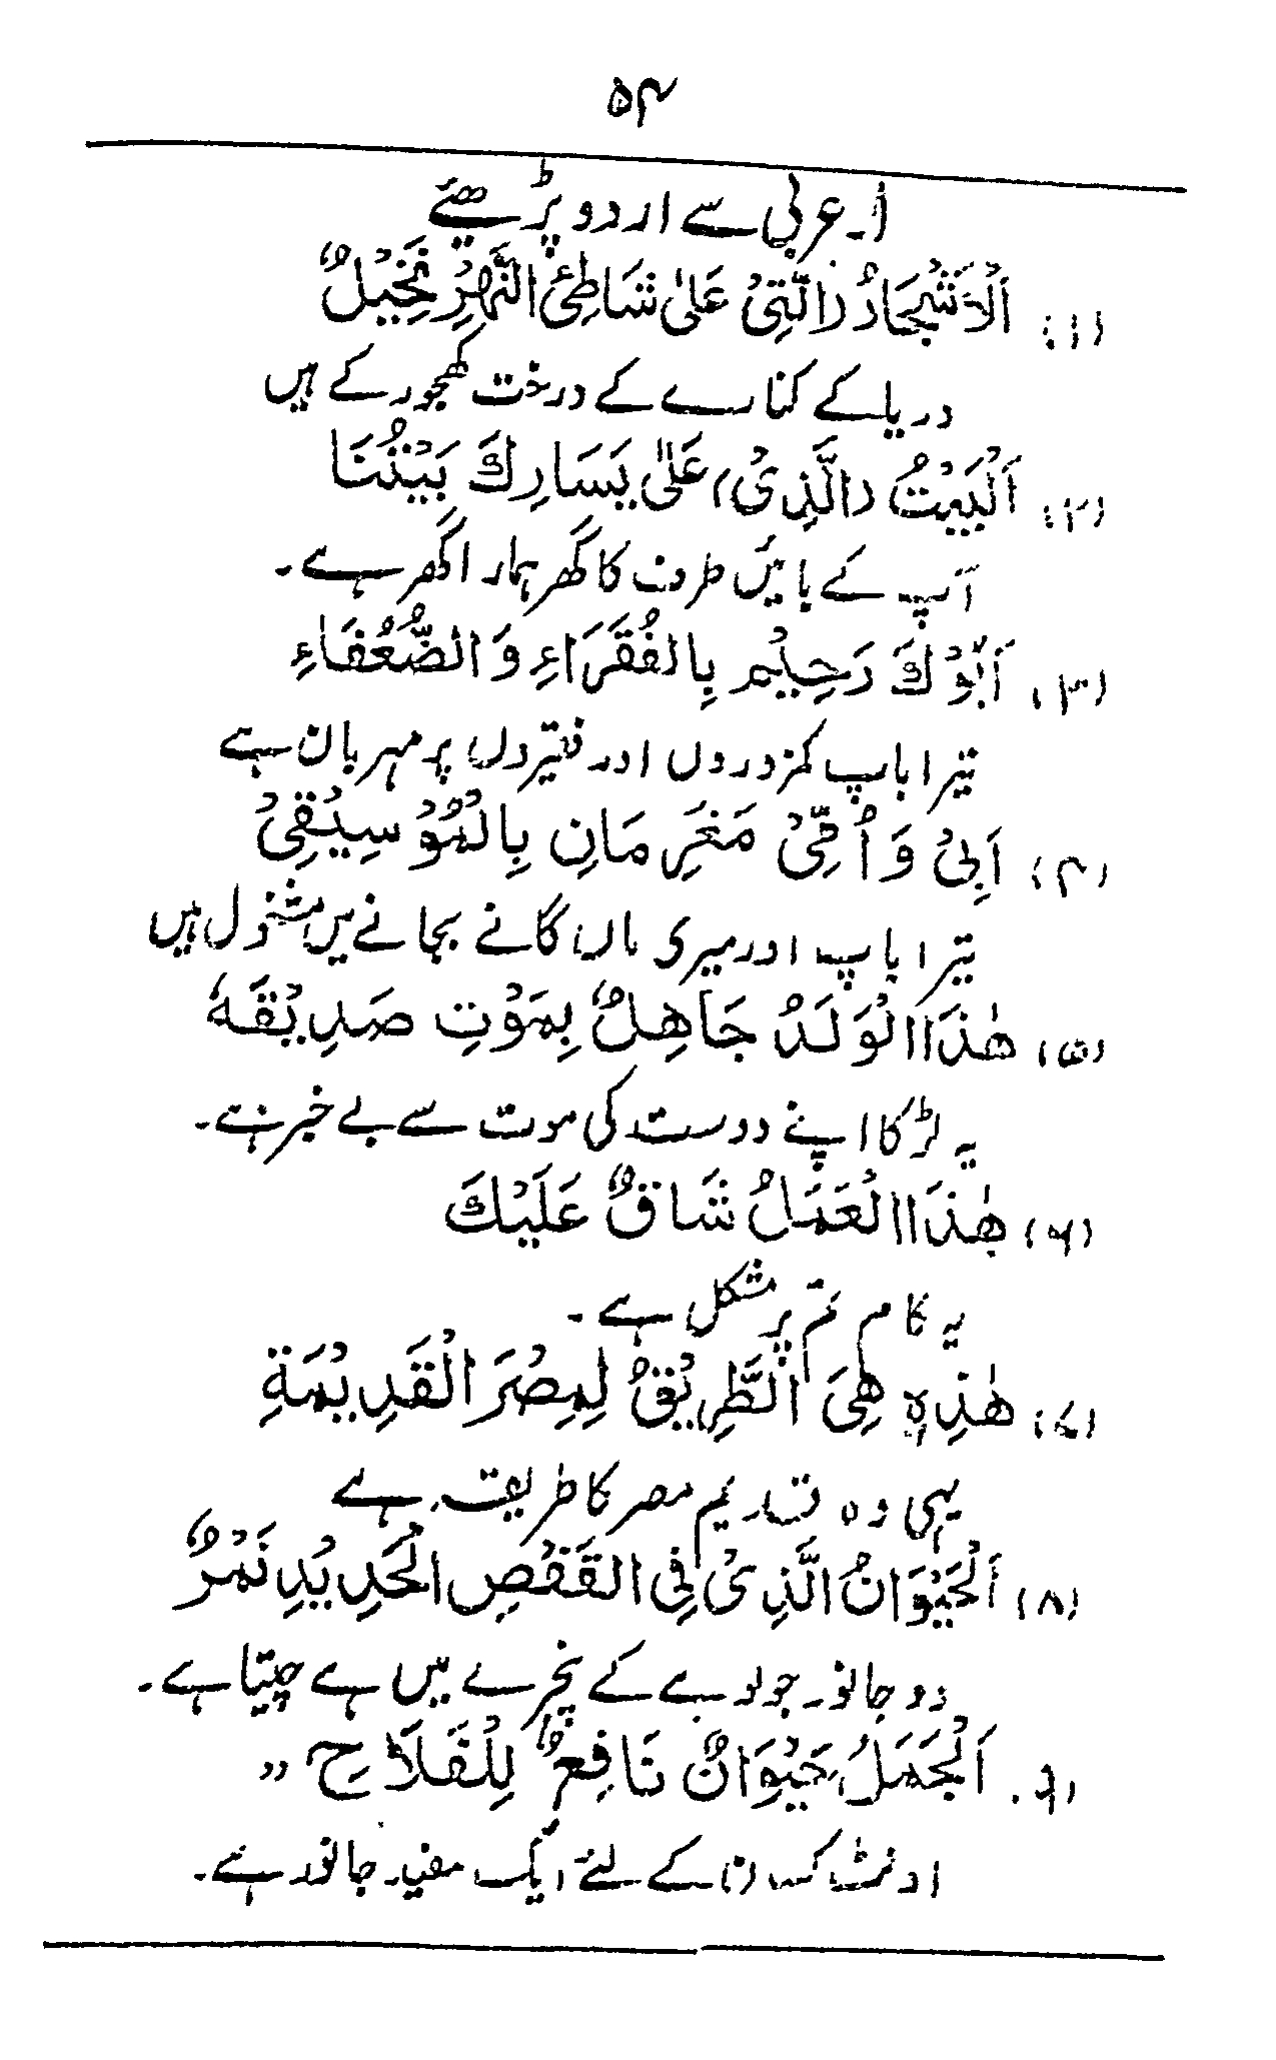 ۵۴
ا۔ عربی سے اردو پڑھئے
(۱) اَلْاَشْجَارُ (الَّتِیْ عَلیٰ شَاطِیِٔ النَّهْرِ نَخِیْلٌ
دریا کے کنارے کے درخت کھجور کے ہیں
(۲) اَلْبَیْتُ (الَّذِیْ) عَلیٰ یَسَارِكَ بَیْتُنَا
آپ کے بائیں طرف کا گھر ہمارا گھر ہے۔
(۳) اَبُوْكَ رَحِیْم بِالفُقَرَاءِ وَالضُّعُفَاءِ
تیرا باپ کمزوروں اور فقیروں پر مہربان ہے
(۴) اَبِیْ وَ اُمِّیْ مَغْرِمَانِ بِالْمُوْسِیْقِیْ
تیرا باپ اور میری ماں گانے بجانے میں مشغول ہیں
(۵) هٰذَا الْوَلَدُ جَاهِلٌ بِمَوْتِ صَدِیْقَهٗ
یہ لڑکا اپنے دوست کی موت سے بے خبر ہے۔
(۶) هٰذَا الْعَمَلُ شَاقٌ عَلَیْكَ
یہ کام تم پر مشکل ہے۔
(۷) هٰذِهٖ هِیَ الطَّرِیْقُ لِمِصْرَ الْقَدِیْمَةِ
یہی وہ قدیم مصر کا طریقہ ہے
(۸) اَلْحَیْوَانُ الَّذِیْ فِی القَفْصِ الْحَدِیْدِ نَمْرٌ
وہ جانور جو لوہے کے پنجرے میں ہے چیتا ہے۔
(۹) اَلْجَمَلُ حَیْوَانٌ نَافِعٌ لِلْفَلَّاحِ ״
اونٹ کسان کے لئے ایک مفید جانور ہے۔